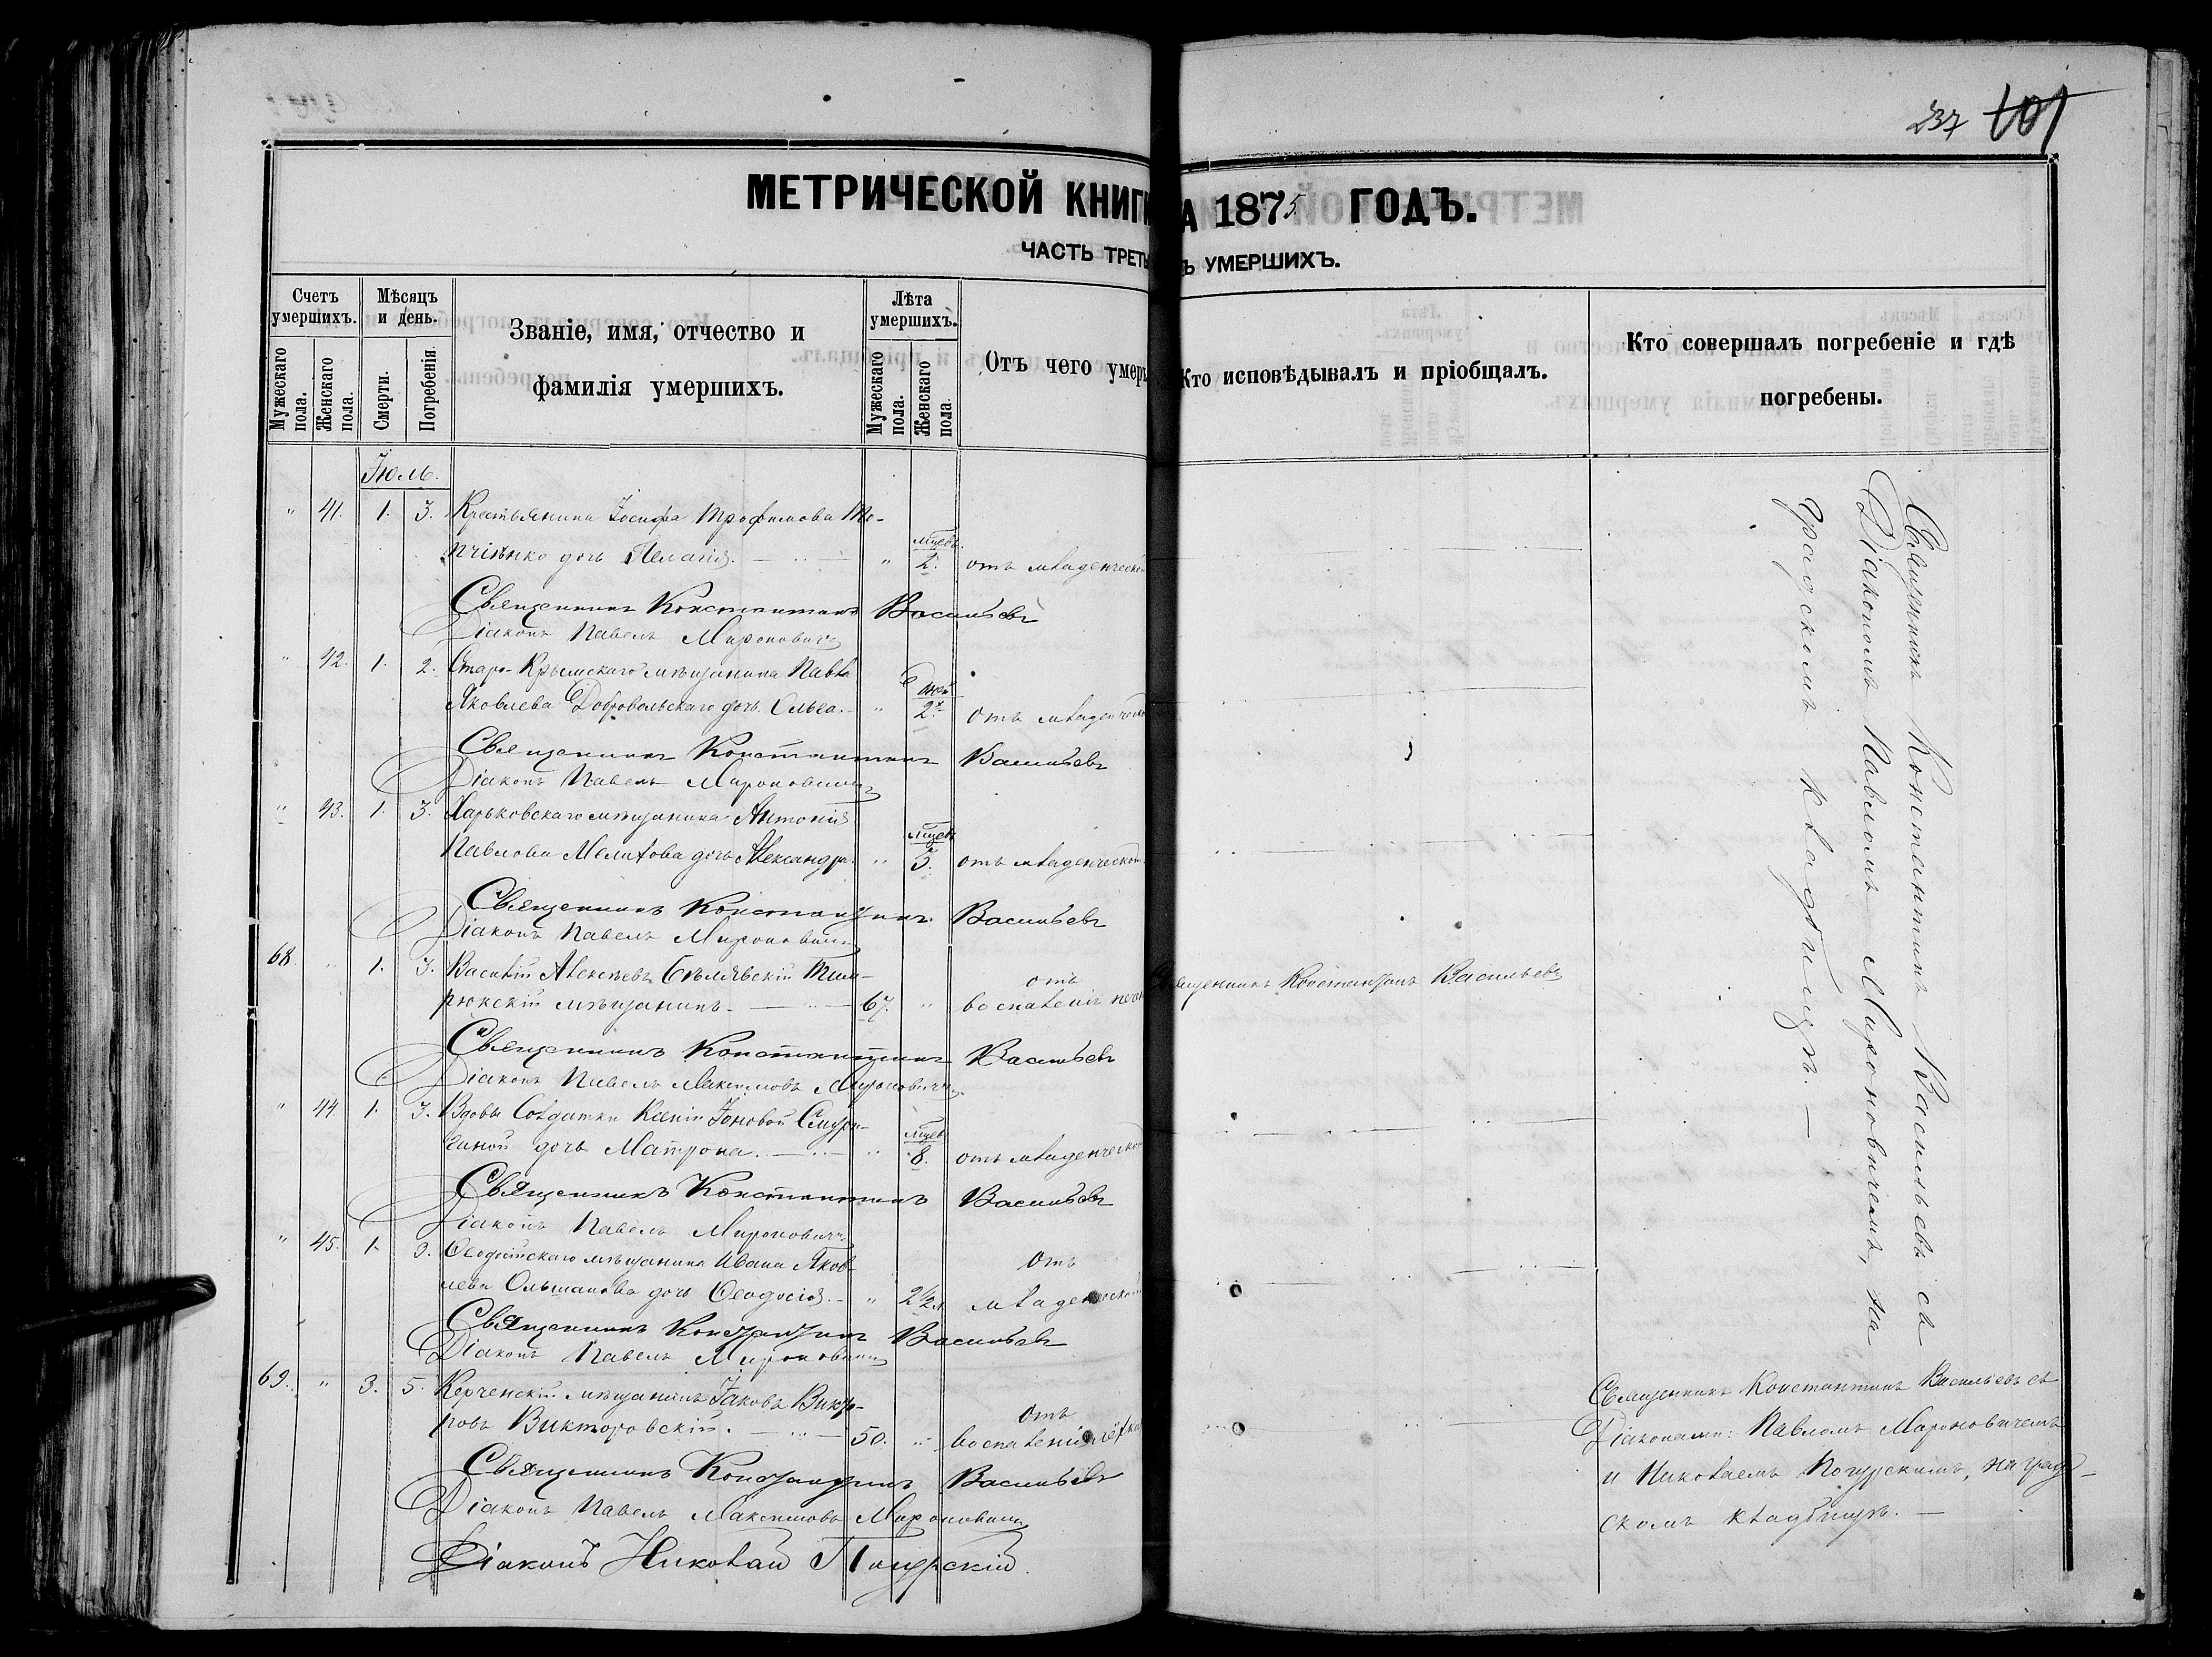 237 101
МЕТРИЧЕСКОЙ КНИГИ
А 1875 ГОДЪ.
ЧАСТЬ ТРЕТЬ
Ъ УМЕРШИХЪ.
Счетъ умершихъ.
Мѣсяцъ и день.
Званіе, имя, отчество и
фамилія умершихъ.
Лѣта умершихъ.
Отъ чего умер
Кто исповѣдывалъ и пріобщалъ.
Кто совершалъ погребеніе и гдѣ
погребены.
Мужескаго пола.
Женскаго пола.
Смерти.
Погребенія.
Мужескаго пола.
Женскаго пола.
Іюль.
" 41. 1. 3. Крестьянина Іосифа Трофимова
дочь Пелагія. " мцевъ 2. отъ младенческой
Священникъ Константинъ Васильевъ
Діаконъ Павелъ Мироновичъ
" 42. 1. 2. Старо-Крымскаго мѣщанина Павла
Яковлева Добровольскаго дочь Ольга. " 2 отъ младенческо
Священникъ Константинъ Васильевъ
Діаконъ Павелъ Мироновичъ
" 43. 1. 3. Харьковскаго мѣщанина Антонія
Павлова дочь Александра. " мцевъ 5. отъ младенческой
Священникъ Константинъ Васильевъ
Діаконъ Павелъ Мироновичъ
68. " 1. 3. Василій Алексѣевъ Тем-
рюкскій мѣщанинъ. 67. " отъ воспаленія
Священникъ Константинъ Васильевъ
Священникъ Константинъ Васильевъ
Діаконъ Павелъ Максимовъ Мироновичъ
" 44. 1. 3. Вдовы Солдатки Ксеніи Іоновой
дочь Матрона. " мцев 8. отъ младенческой
Священникъ Константинъ Васильевъ
Діаконъ Павелъ Мироновичъ
" 45. 1. 3. Ѳеодосійскаго мѣщанина Ивана Яков-
лева Ольшанова дочь Ѳеодосія. " 2 1/2 л. Отъ младенческой
Священникъ Константинъ Васильевъ
Діаконъ Павелъ Мироновичъ
69. " 3. 5. Керченскій мѣщанинъ Іаковъ
Викторовскій. 50. " Отъ воспаленія
Священникъ Константинъ Васильевъ
Діаконъ Павелъ Максимовъ Мироновичъ
Діаконъ Николай
Священникъ Константинъ Васильевъ съ
Діакономъ Павломъ Мироновичемъ, на
градскомъ кладбищѣ.
Священникъ Константинъ Васильевъ съ
Діаконами: Павломъ Мироновичемъ
и Николаемъ на град-
скомъ кладбищѣ.